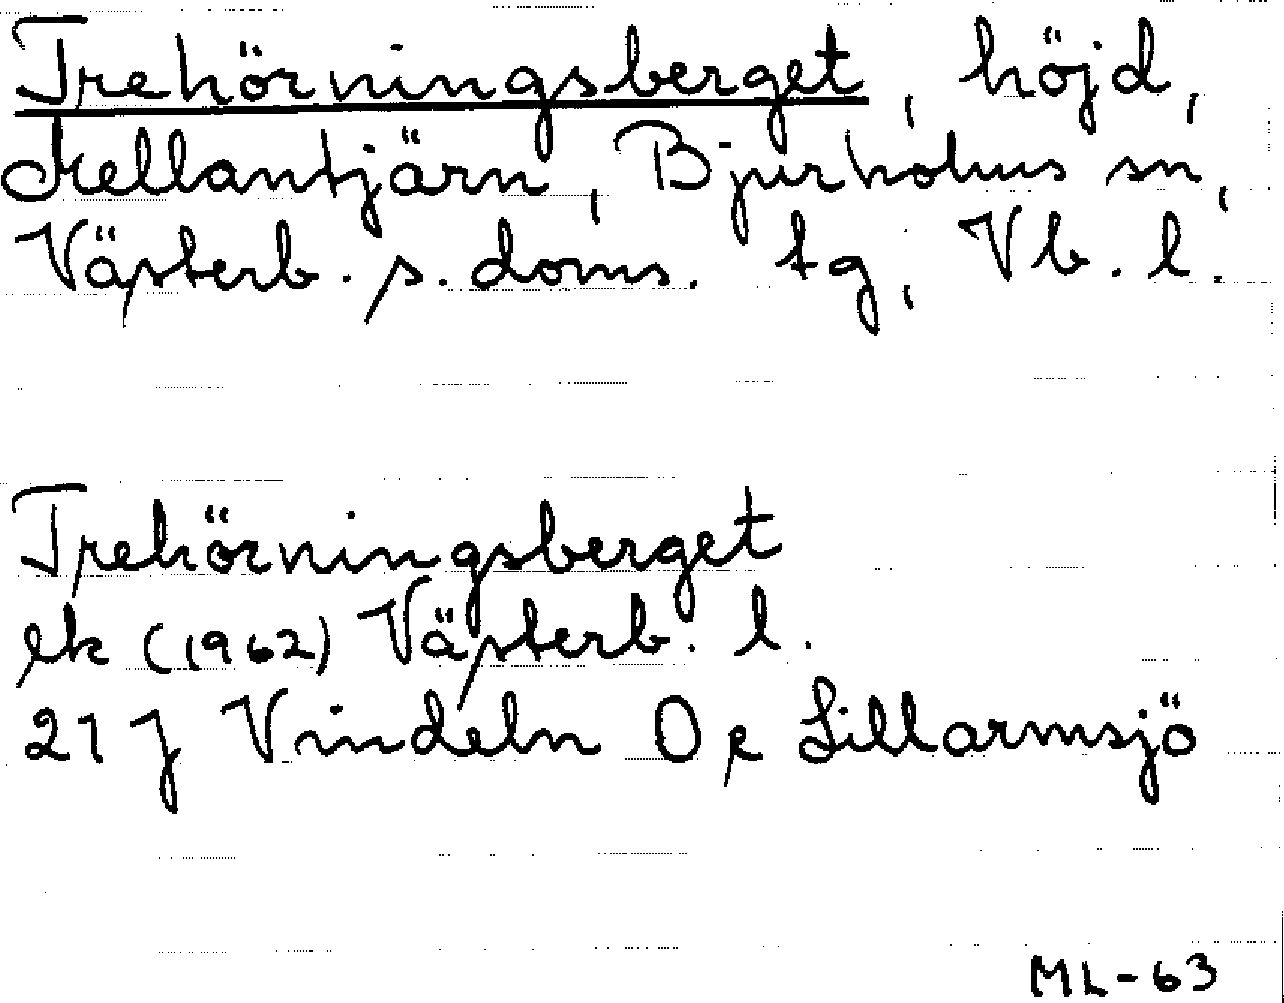 Trehörningsberget, höjd,
Mellantjärn, Bjurholms sn,
Västerb. s. doms. tg, Vb. l.
Trehörningsberget
ek (1962) Västerb. l.
21 J Vindeln Oe Lillarmsjö
ML-63